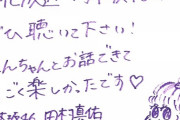 ひ聴いて下さい!
んちゃんとお話できて
ごく楽しかったです♡
46 田村真佑